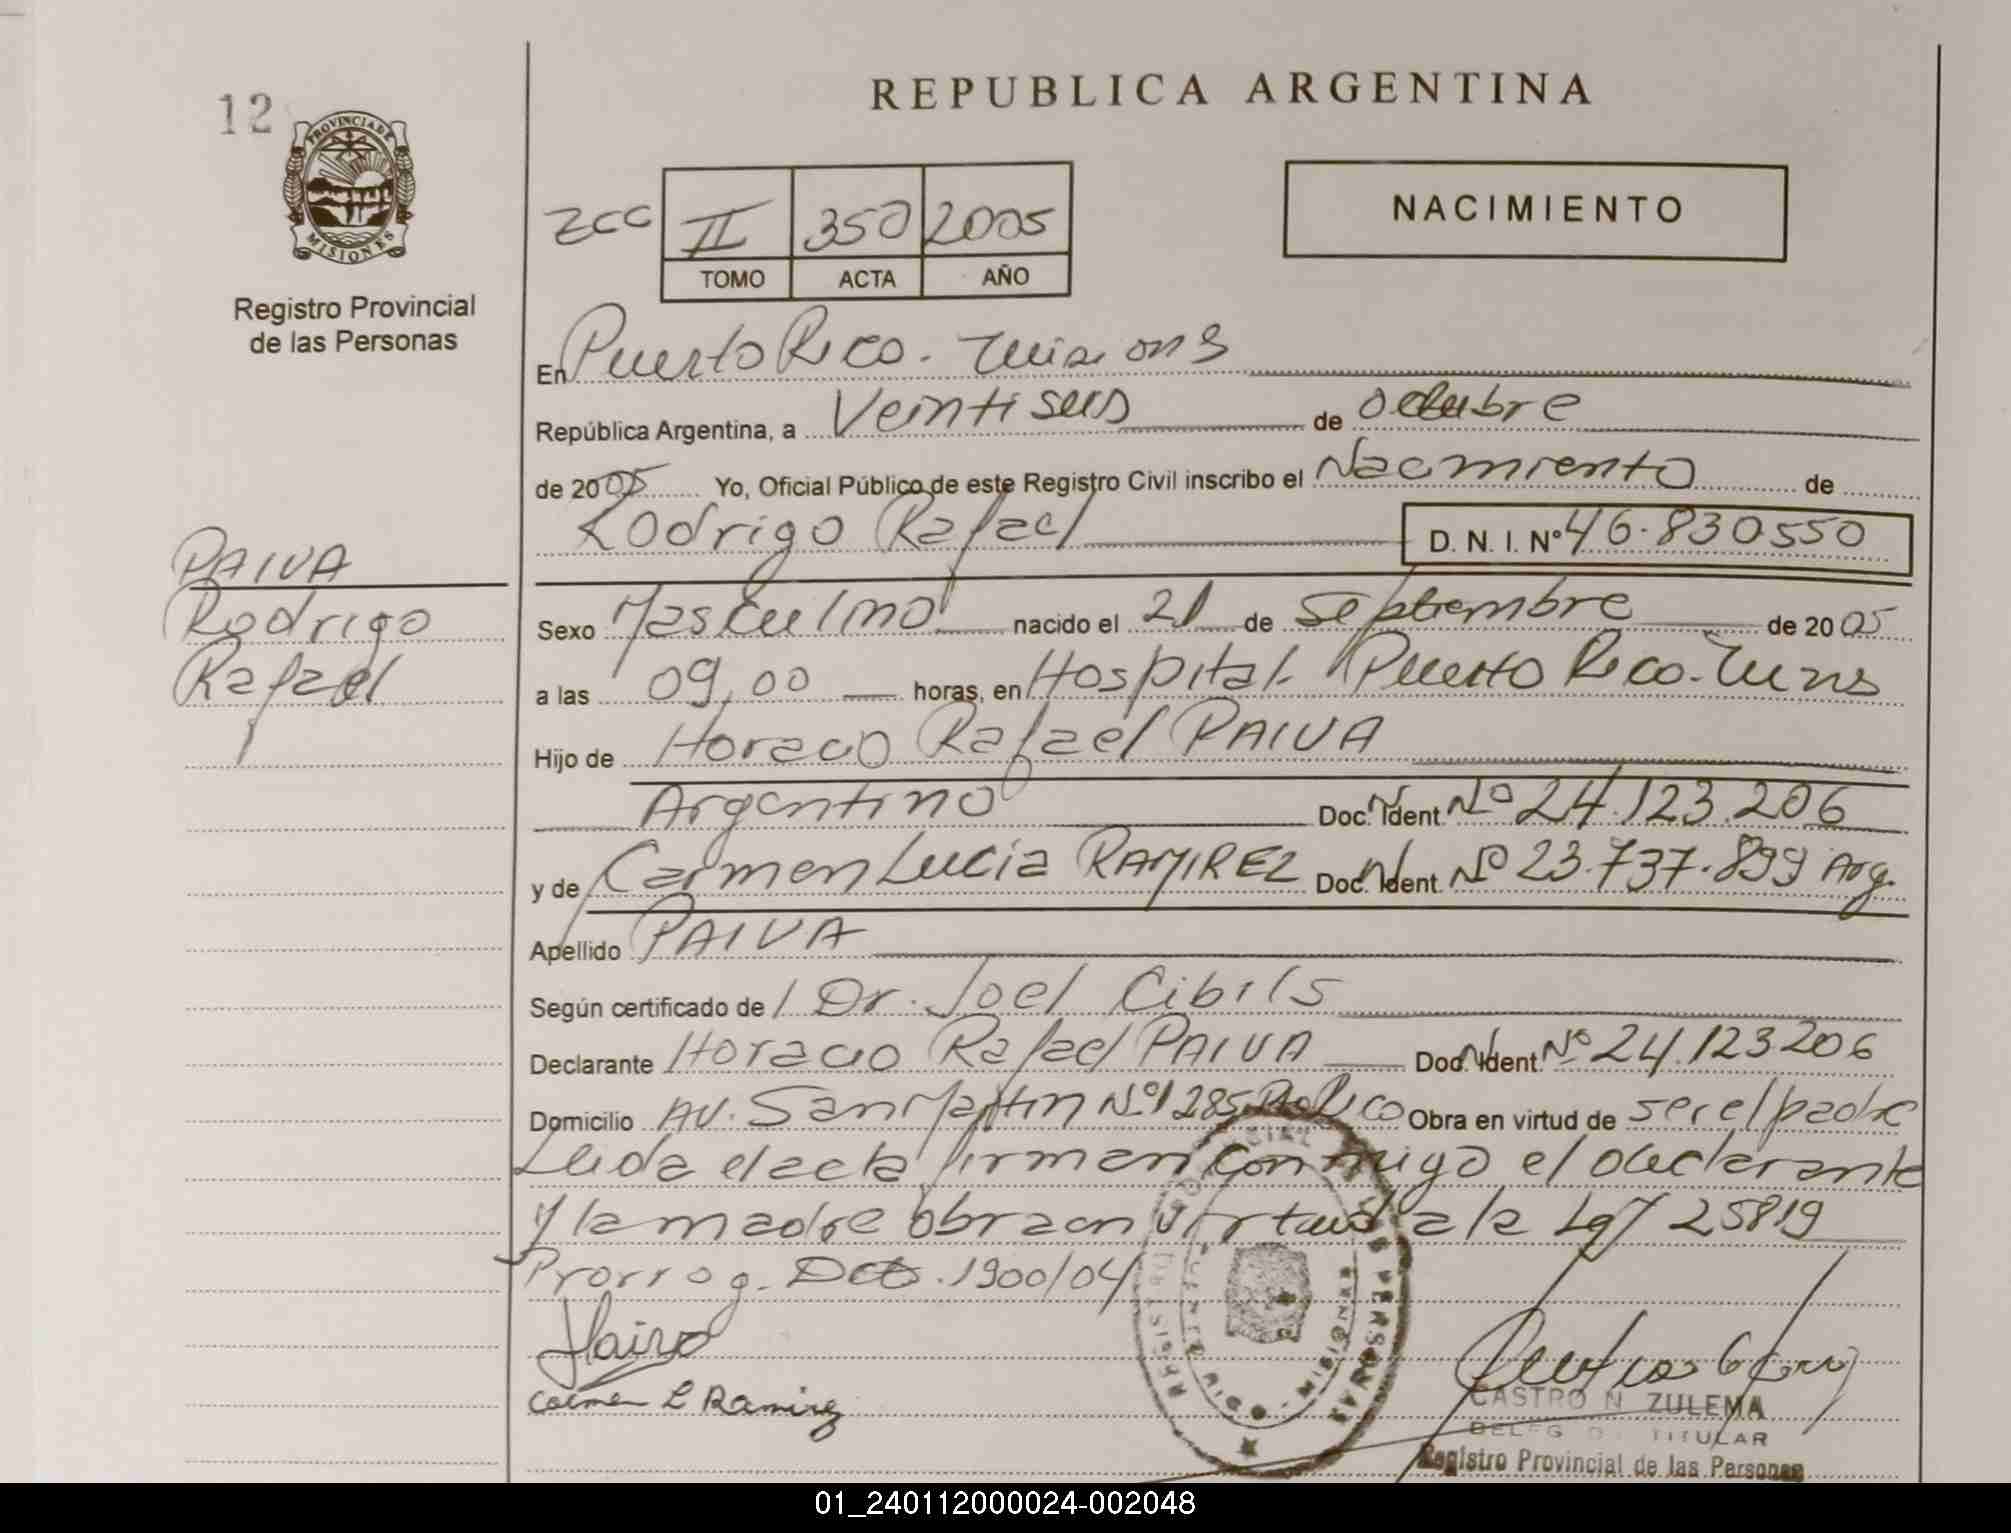 REPUBLICA ARGENTINA
12
PROVINCIA DE
MISIONES
Registro Provincial
de las Personas
zcc II 350 2005
TOMO ACTA AÑO
NACIMIENTO
En Puerto Rico. Misiones
República Argentina, a Veintiseis de octubre
de 2005 Yo, Oficial Público de este Registro Civil inscribo el Nacimiento de
Rodrigo Rafael D. N. I. Nº 46.830550
PAIVA
Rodrigo
Rafael
Sexo Masculino nacido el 21 de Septiembre de 2005
a las 09,00 horas, en Hospital Puerto Rico. Mnes
Hijo de Horacio Rafael PAIVA
Argentino Doc. Ident Nº 24.123.206
y de Carmen Lucia RAMIREZ Doc. Ident Nº 23.737.899 Arg.
Apellido PAIVA
Según certificado de Dr. Joel Cibils
Declarante Horacio Rafael PAIVA Doc. Ident. Nº 24.123206
Domicilio AV. San Martin Nº 1285 Pto Rico Obra en virtud de ser el padre
Leida el acta firman conmigo el declarante
y la madre obra en virtud a la Ley 25819
Prorrog. Dcto. 1900/04
Carmen L Ramirez
CASTRO N. ZULEMA
TITULAR
Registro Provincial de las Personas
01_240112000024-002048